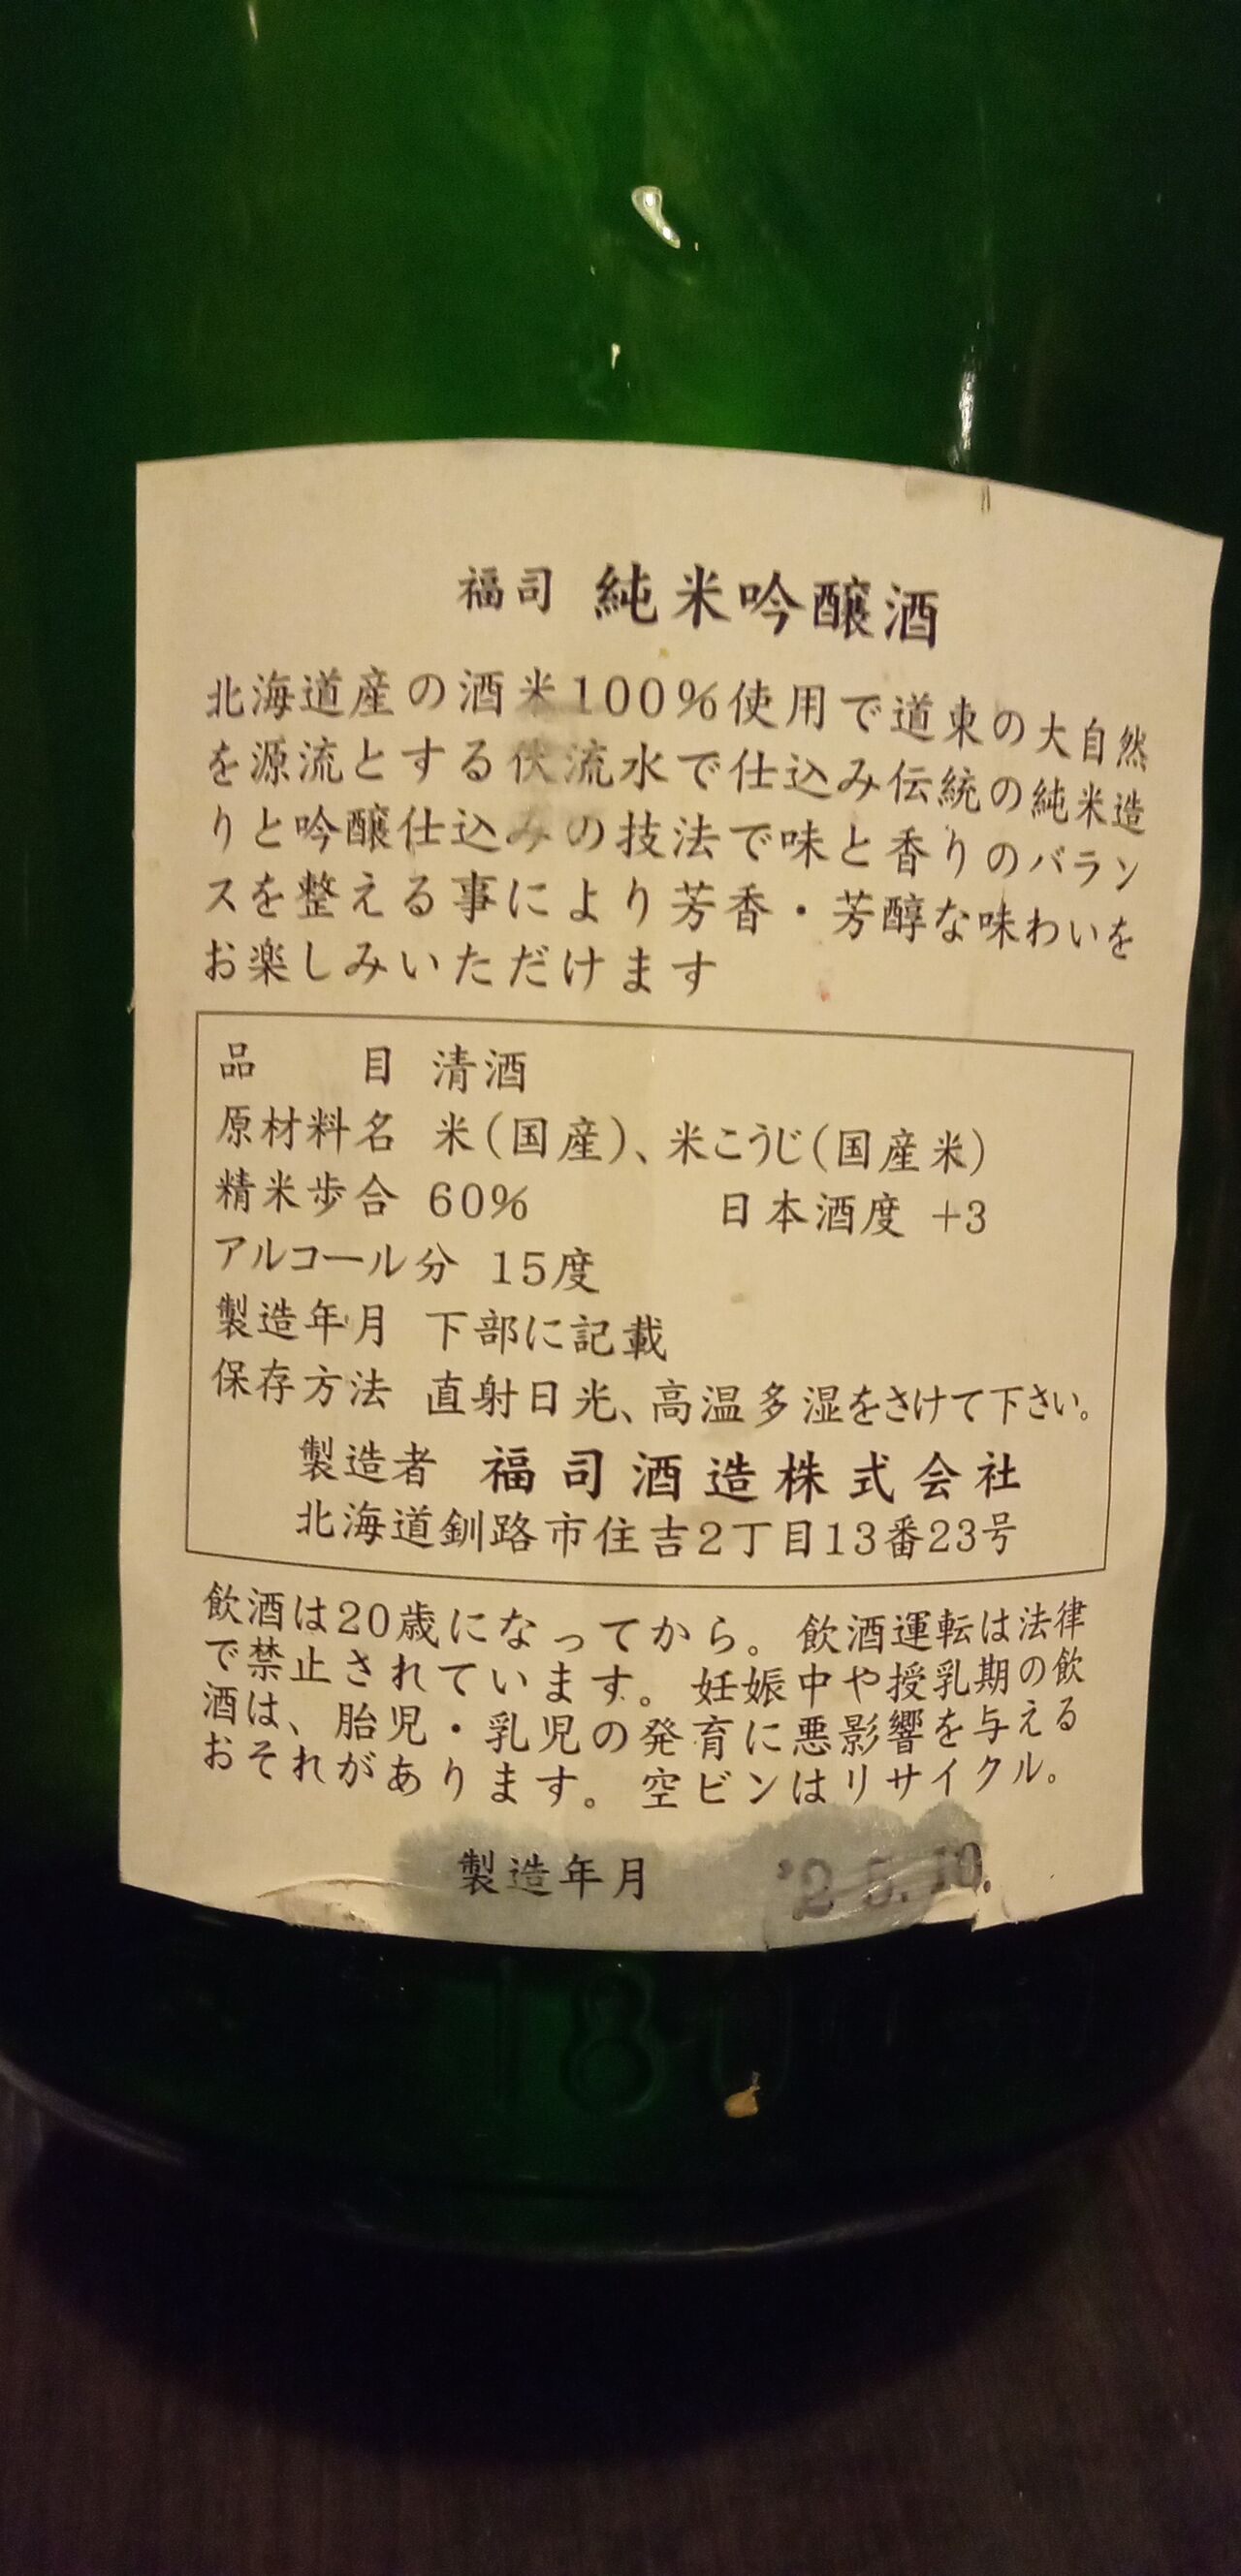 福司 純米吟醸酒
北海道産の酒米100%使用で道東の大自然
を源流とする伏流水で仕込み伝統の純米造
りと吟醸仕込みの技法で味と香りのバラン
スを整える事により芳香・芳醇な味わいを
お楽しみいただけます
品 目 清酒
原材料名 米(国産)、米こうじ(国産米)
精米歩合 60% 日本酒度 +3
アルコール分 15度
製造年月 下部に記載
保存方法 直射日光、高温多湿をさけて下さい。
製造者 福司酒造株式会社
北海道釧路市住吉2丁目13番23号
飲酒は20歳になってから。飲酒運転は法律
で禁止されています。妊娠中や授乳期の飲
酒は、胎児・乳児の発育に悪影響を与える
おそれがあります。空ビンはリサイクル。
製造年月